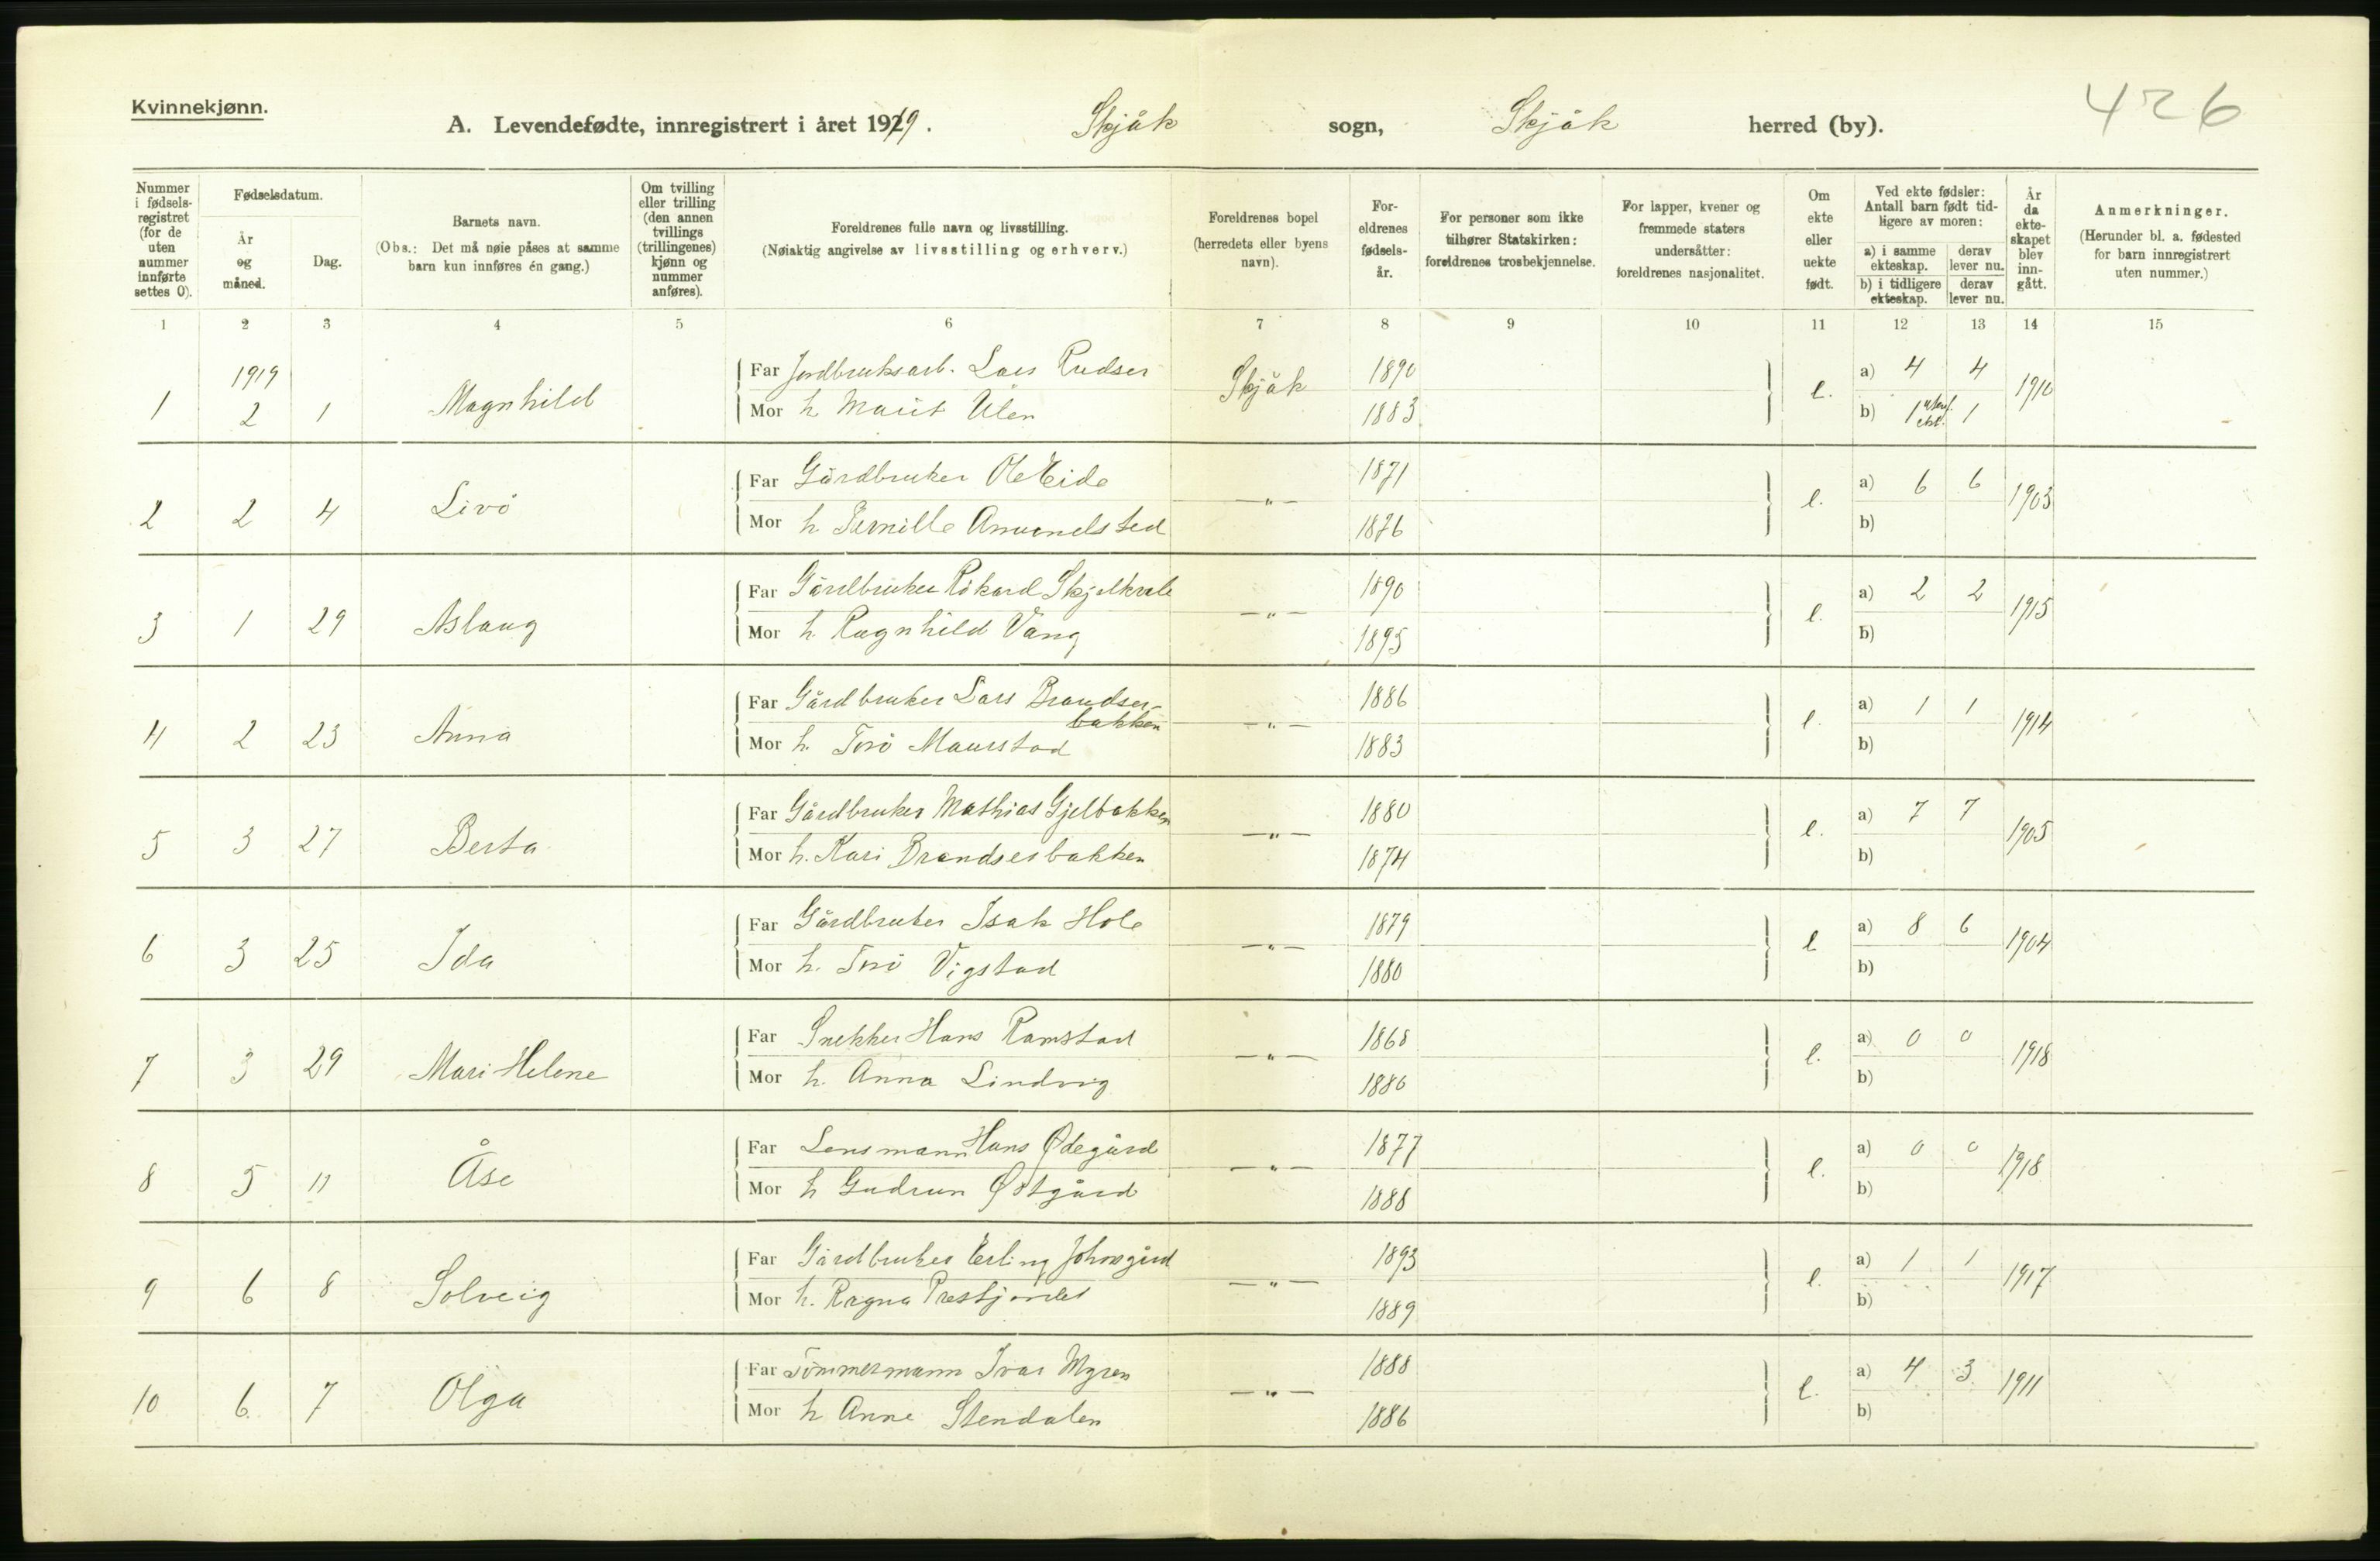 Kvinnekjønn.
426
A. Levendefødte, innregistrert i året 1919. Skjåk sogn, Skjåk herred (by).
Nummer i fødselsregistret (for de uten nummer innførte settes 0).
Fødselsdatum.
År og måned.
Dag.
Barnets navn.
(Obs.: Det må nøie påses at samme barn kun innføres én gang.)
Om tvilling eller trilling (den annen tvillings (trillingenes) kjønn og nummer anføres).
Foreldrenes fulle navn og livsstilling.
(Nøiaktig angivelse av livsstilling og erhverv.)
Foreldrenes bopel (herredets eller byens navn).
Foreldrenes fødselsår.
For personer som ikke tilhører Statskirken: foreldrenes trosbekjennelse.
For lapper, kvener og fremmede staters undersåtter: foreldrenes nasjonalitet.
Om ekte eller uekte født.
Ved ekte fødsler: Antall barn født tidligere av moren:
a) i samme ekteskap. derav lever nu.
b) i tidligere ekteskap. derav lever nu.
År da ekteskapet blev inngått.
Anmerkninger.
(Herunder bl. a. fødested for barn innregistrert uten nummer.)
1 2 3 4 5 6 7 8 9 10 11 12 13 14 15
1919
1 2 1 Magnhild Far Jordbruksarb. Lars Rudser Skjåk 1890 e. a) 4 4 1910
Mor h Marit Ulen 1883 b) 1 1
2 2 4 Livö Far Gårdbruker Ole Eide —„— 1871 e. a) 6 6 1903
Mor h Pernille Amundsted 1876 b)
3 1 29 Aslaug Far Gårdbruker Rikard Skjelkvale —„— 1890 e. a) 2 2 1915
Mor h. Ragnhild Vang 1895 b)
4 2 23 Anna Far Gårdbruker Lars Brandserbakken —„— 1886 e. a) 1 1 1914
Mor h. Torö Maurstad 1883 b)
5 3 27 Berta Far Gårdbruker Mathias Gjelbakken —„— 1880 e. a) 7 7 1905
Mor h. Kari Brandserbakken 1874 b)
6 3 25 Ida Far Gårdbruker Isak Hole —„— 1879 e a) 8 6 1904
Mor h. Torö Vigstad 1880 b)
7 3 29 Mari Helene Far Snekker Hans Ramstad —„— 1868 e. a) 0 0 1918
Mor h. Anna Lindvig 1886 b)
8 5 11 Åse Far Lensmann Hans Ødegård —„— 1877 e. a) 0 0 1918
Mor h Gudrun Østgård 1888 b)
9 6 8 Solveig Far Gårdbruker Erling Johnsgård —„— 1893 e. a) 1 1 1917
Mor h. Ragna Prestjordet 1889 b)
10 6 7 Olga Far Tømmermann Ivar Myren —„— 1888 e. a) 4 3 1911
Mor h Anne Stendalen 1886 b)